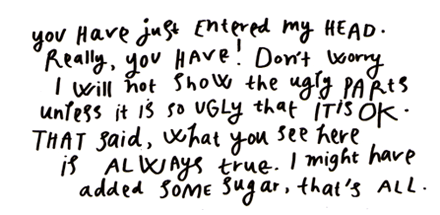 you HAVE just ENTERED my HEAD.
Really, you HAVE! Don't worry
I will not SHOW the ugly PARTS
unless it IS SO UGLY that IT IS OK.
THAT said, what you see here
is ALWAYS true. I might have
added SOME sugar, that's ALL.